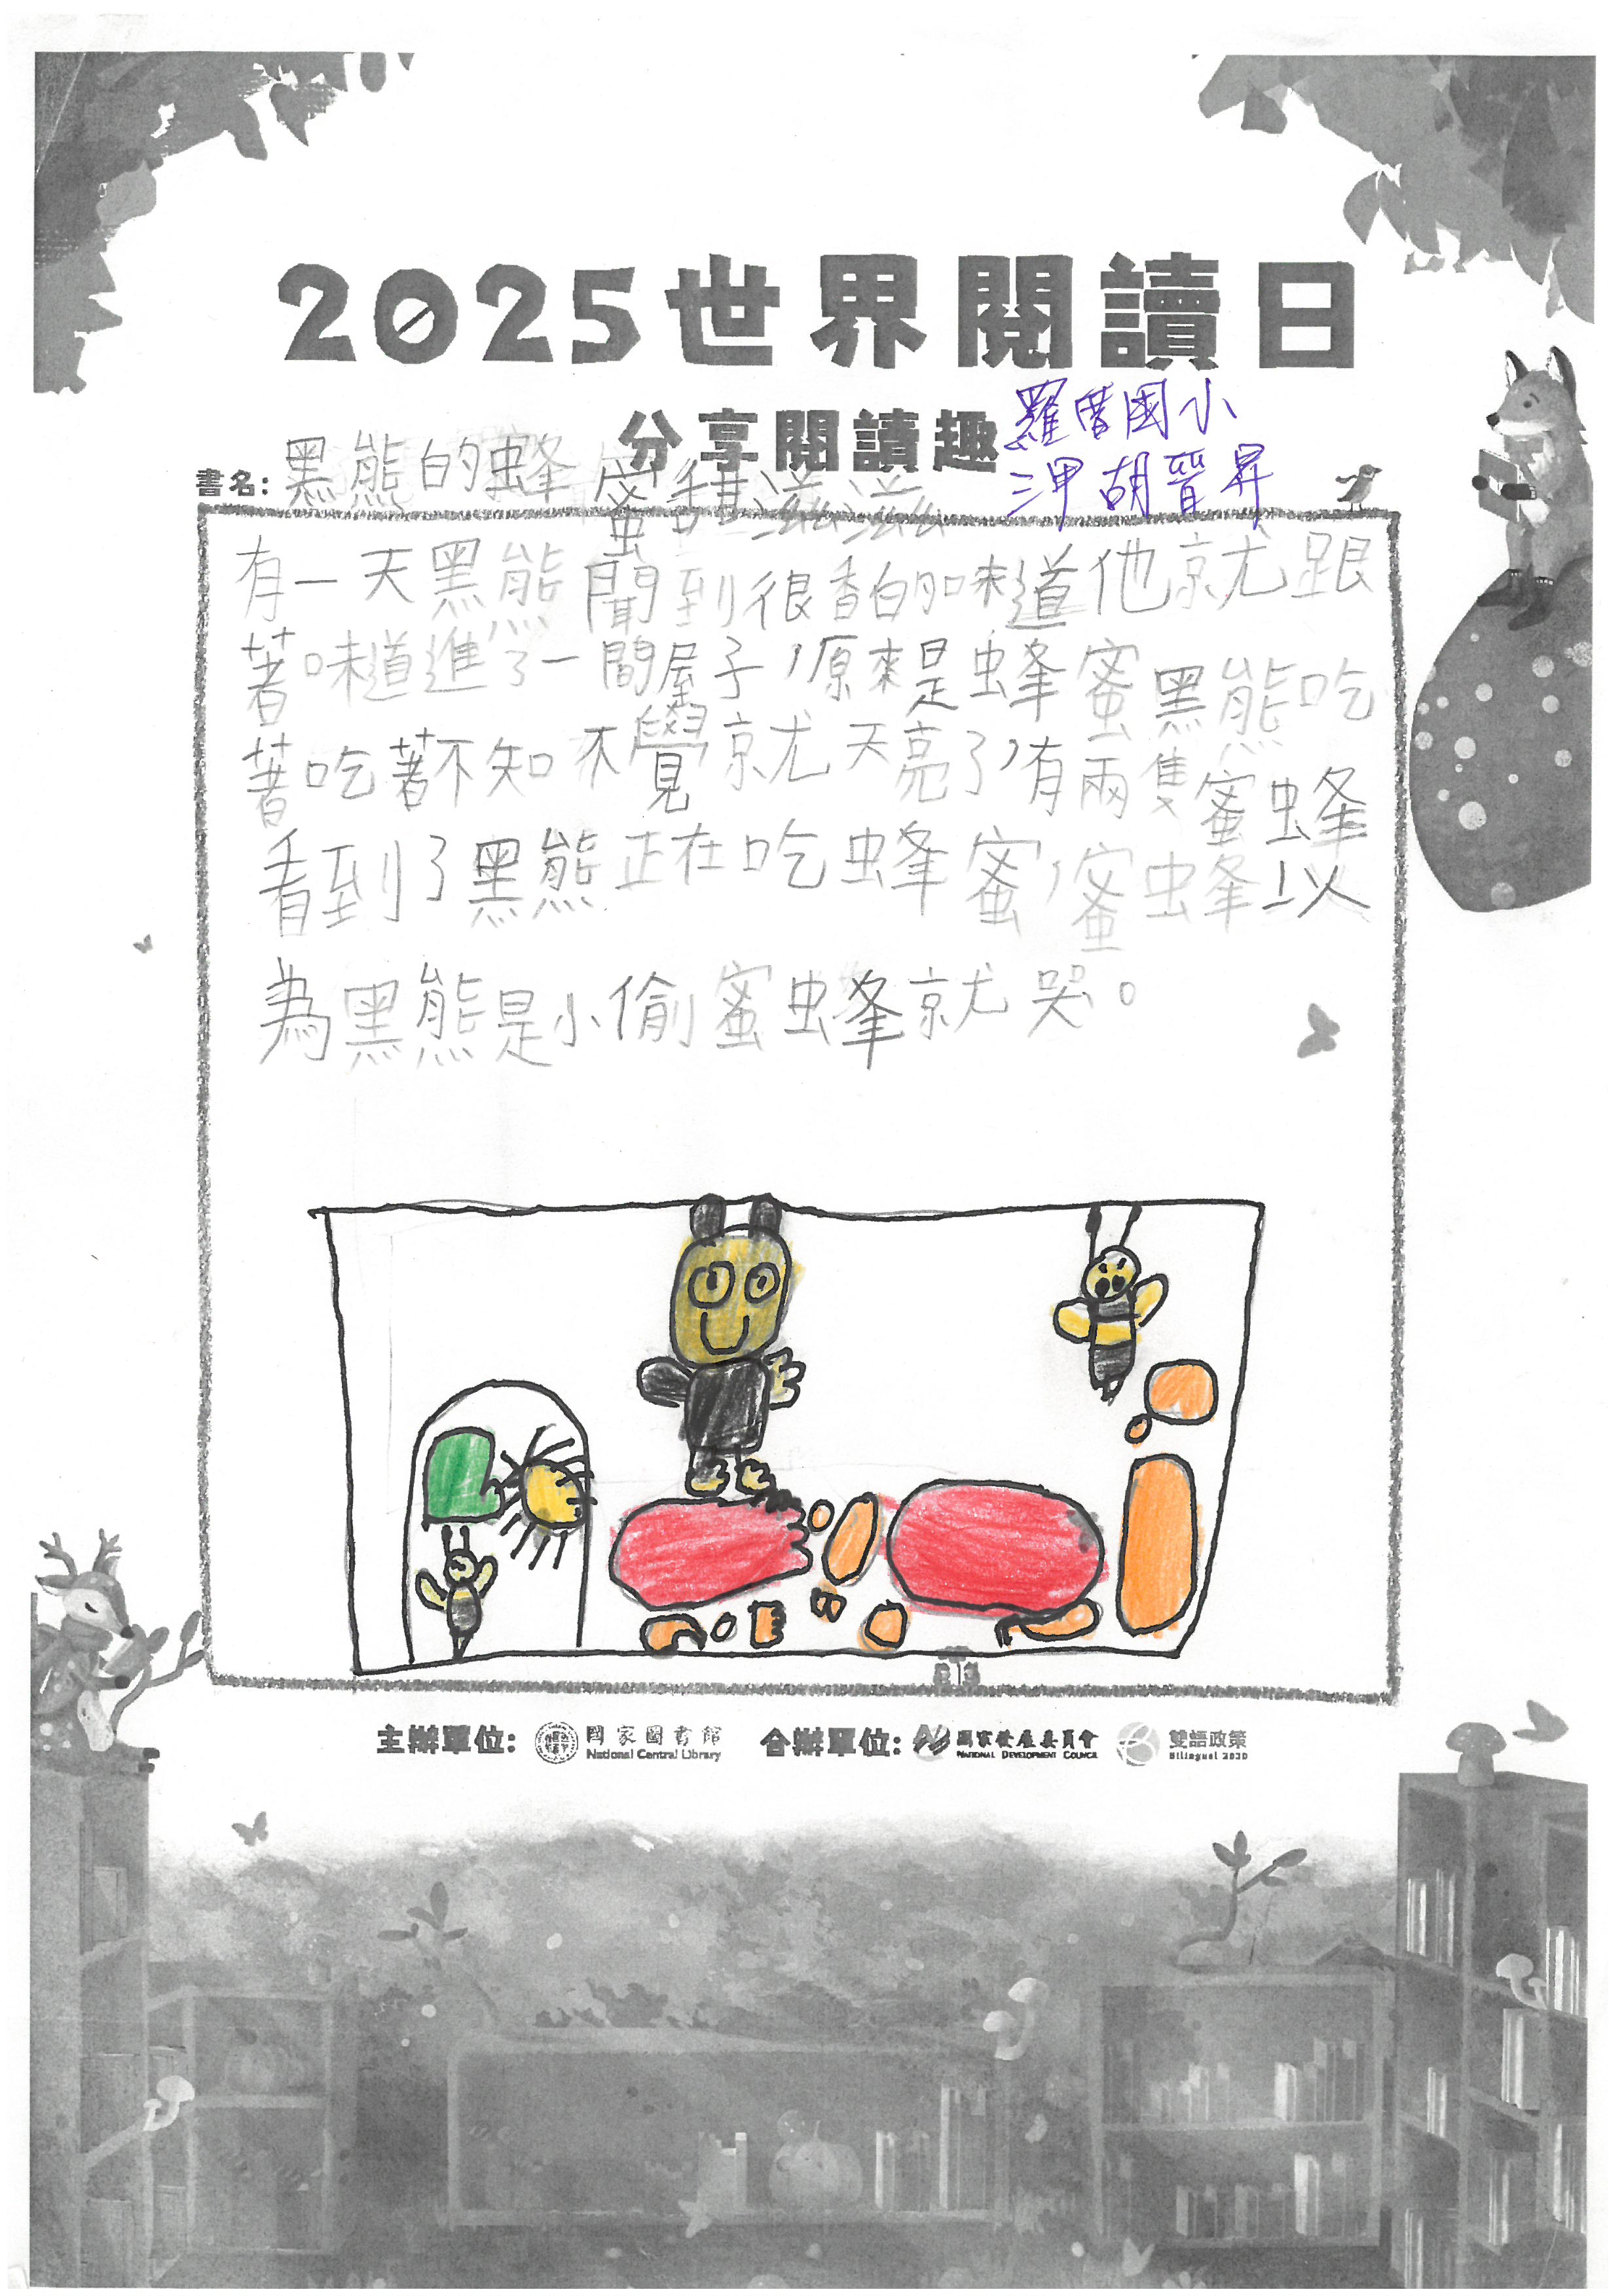 2025世界閱讀日
分享閱讀趣
羅厝國小
三甲 胡晉昇
書名：黑熊的蜂蜜甜滋滋
有一天黑熊聞到很香的味道他就跟
著味道進了一間屋子，原來是蜂蜜黑熊吃
著吃著不知不覺就天亮了，有兩隻蜜蜂
看到了黑熊正在吃蜂蜜，蜜蜂以
為黑熊是小偷蜜蜂就哭。
主辦單位：國家圖書館 National Central Library 合辦單位：國家發展委員會 National Development Council 雙語政策 Bilingual 2030